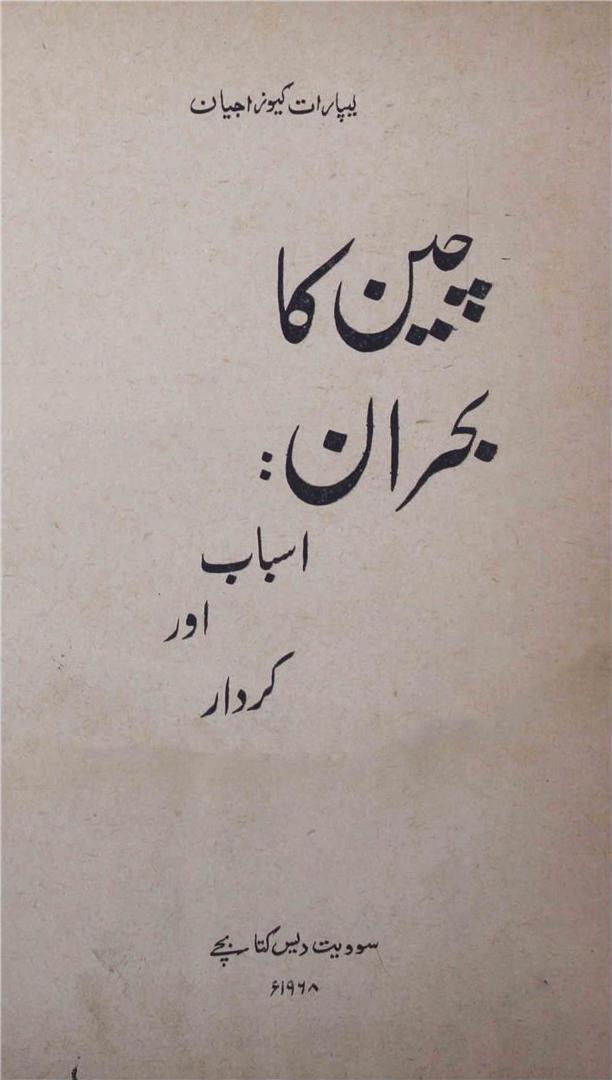 یپارات کیونراجیان
چین کا
بحران :
اسباب
اور
کردار
سوویت دیس کتابچے
۱۹۶۸ء